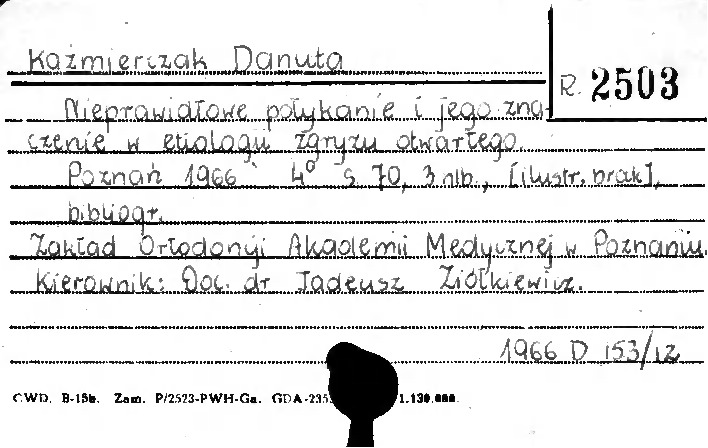 Kaźmierczak Danuta
R 2503
Nieprawidłowe połykanie i jego zna-
czenie w etiologii zgryzu otwartego.
Poznań 1966 4° s. 70, 3 nlb., [ilustr. brak],
bibliogr.
Zakład Ortodoncji Akademii Medycznej w Poznaniu.
Kierownik: Doc. dr Tadeusz Ziółkiewicz.
1966 D 153/12
CWD. B-15b. Zam. P/2523-PWH-Ga. GDA-235 1.130.000.